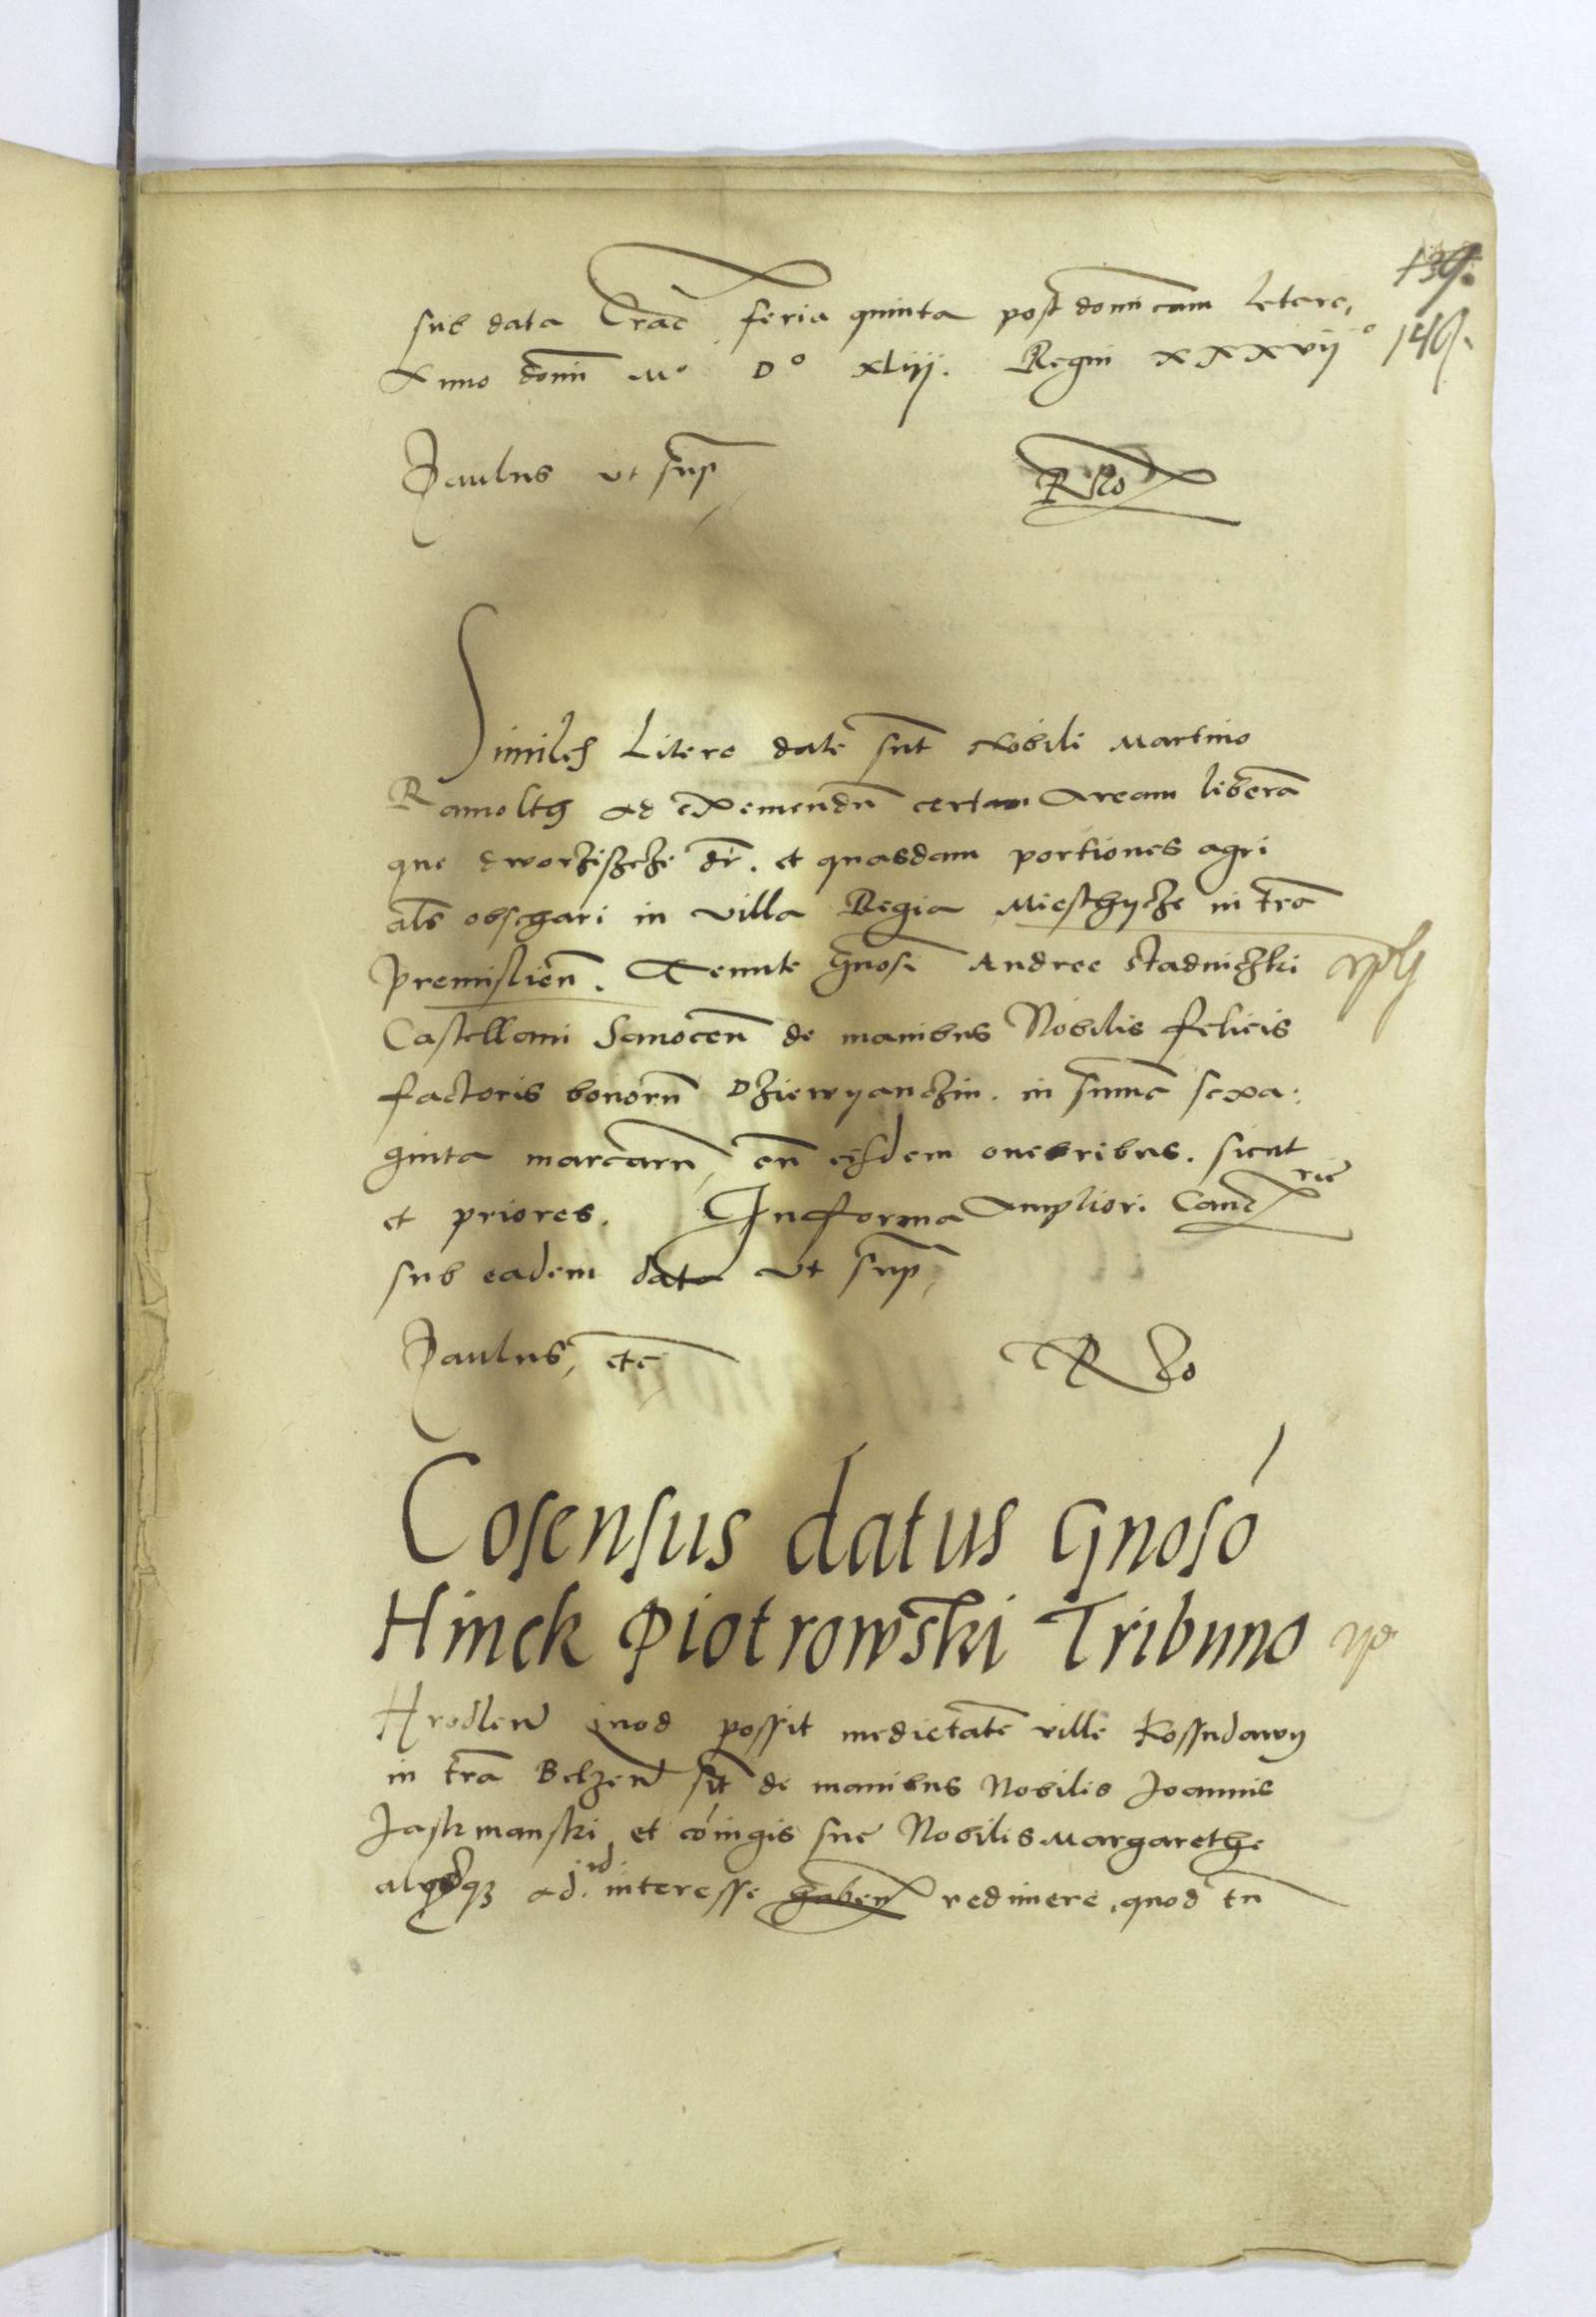 139.
sub data Crac̄ feria quinta post domīcam letare,
140.
Anno domī Mº Dº xliij. Regni xxxvijº
Paulus ut sup̄
Similes Litere date sūt Nobili Martino
Ramolth ad exemendū certam Aream liberā
que dworziszcze dr̄. et quasdam portiones agri
als̄ obschari in villa Regia Miesthycze in tr̄a
Premislien̄. Tenute Gnosi Andree Stadniczki
Castellani Sanocen̄ de manibus Nobilis felicis
factoris bonorū Dziewyanczin. in sūme sexa:
ginta marcarū, cū eisdem oneribus. sicut
et priores. In forma Ampliori Canc̄rie
sub eadem data ut sup̄,
Paulus, etc̄
Cosensus datus Gnosó
Hinck Piotrowski Tribuno
Hrodlen̄ quod possit medietatē ville Kossudawy
in tr̄a Belzen̄ sit̄ de manibus Nobilis Joannis
Jaskmanski et cóiugis sue Nobilis Margarethe
ad id interesse haben̄ redimere, quod tn̄